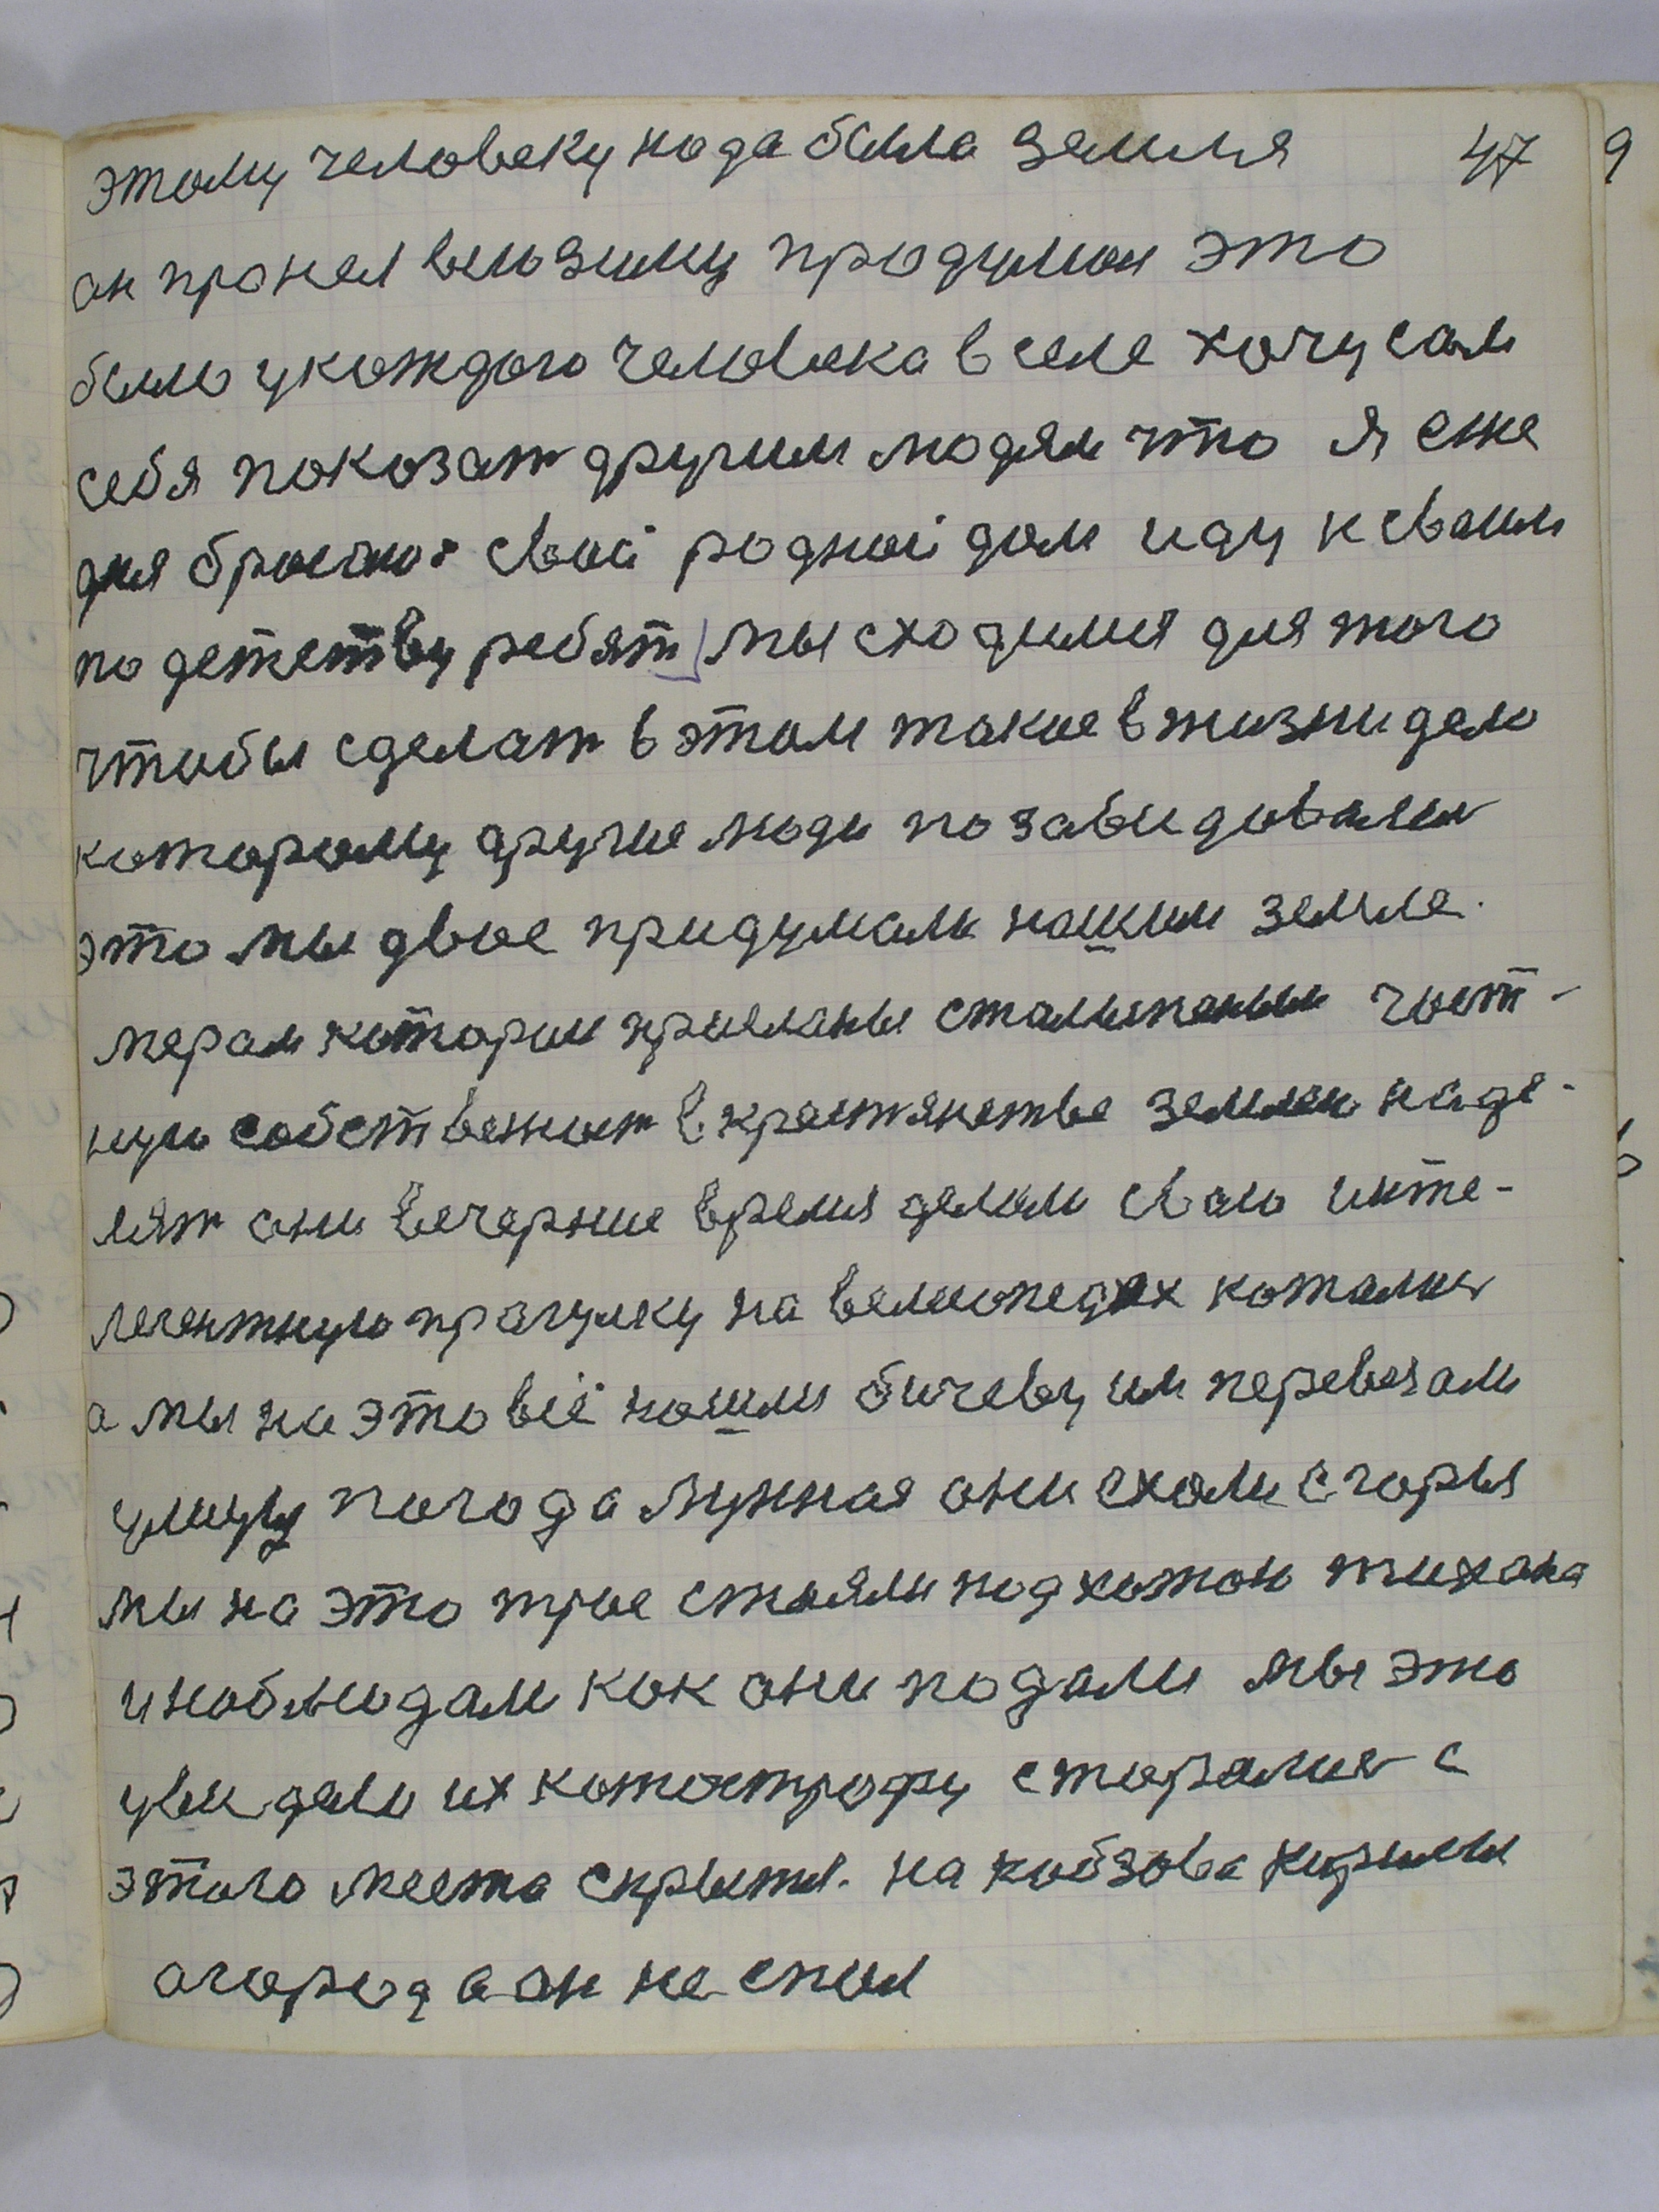 этому человеку нада была земля 47
он пронел всю зиму продумал это
было укождого человека в селе хочу сам
себя покозат другим людям что я сже
для бросаю свой родной дом иду к своим
по детству ребят мы сходимся для того
чтобы сделат в этом такое в жизни дело
которому другие люди позавидовали
это мы двое придумали нашим земле-
мерам которые присланы сталыпеным част-
ную собственност в крестянстве землеи наде-
лят они вечерние время делали свою инте-
легентную прагулку на велиопедах котались
а мы на это всё ношли бичеву им перевезали
улицу погода лунная они ехали сгоры
мы на это трое стояли под хотои тихона
и наблюдали как они подали мы это
увидели их котострофу старались с
этого места скрытся. на кобзова кирилы
огород а он не спал